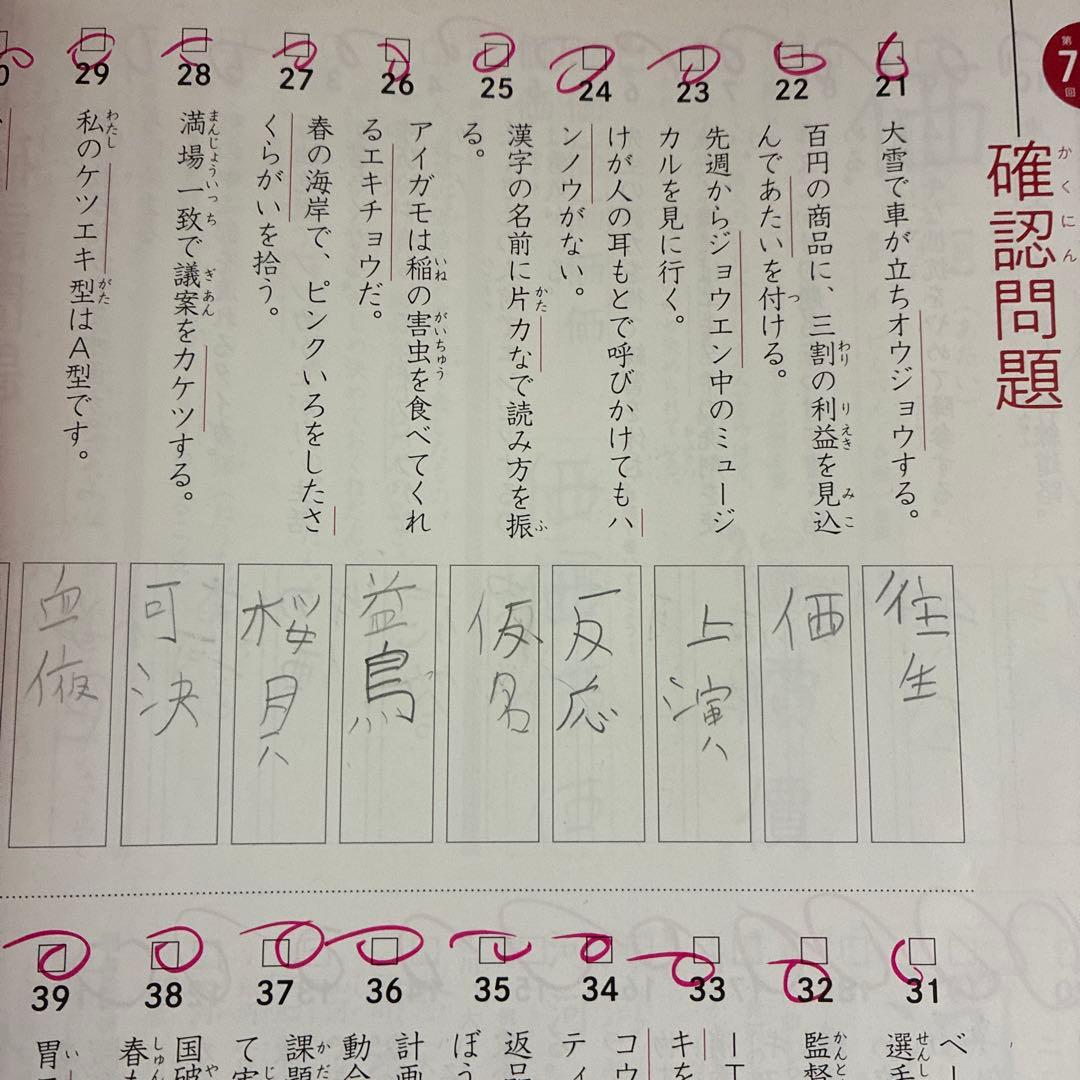 第7回
確認問題
かくにん
21
大雪で車が立ちオウジョウする。
往生
22
百円の商品に、三割の利益を見込
わり りえき みこ
んであたいを付ける。
つ
価
23
先週からジョウエン中のミュージ
カルを見に行く。
上演
24
けが人の耳もとで呼びかけてもハ
ンノウがない。
反応
25
漢字の名前に片カなで読み方を振
かた ふ
る。
仮名
26
アイガモは稲の害虫を食べてくれ
いね がいちゅう
るエキチョウだ。
益鳥
27
春の海岸で、ピンクいろをしたさ
くらがいを拾う。
桜貝
28
満場一致で議案をカケツする。
まんじょういっち ぎあん
可決
29
私のケツエキ型はA型です。
わたし がた
血液
31
ベー
選手
せんし
32
監督
かんと
33
キを
34
コウ
ティ
35
返品
ぼう
36
計画
動会
37
課題
かだ
て実
じ
38
国破
や
春も
しゅん
39
胃
い